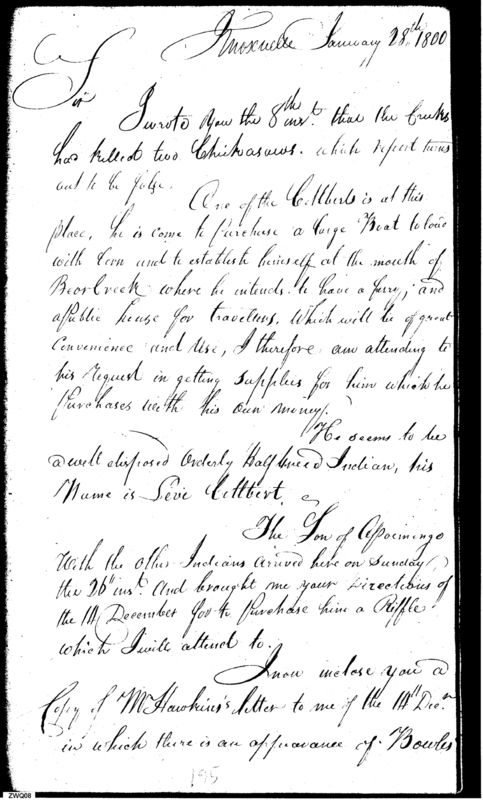 Knoxville January 28th 1800
Sir
I wrote you the 8th inst. that the Creeks
has killed two Chickasaws. which report turns
out to be false.
One of the Colberts is at this
place, he is come to purchase a large Boat to load
with Corn and to establish himself at the mouth of
Bear Creek where he intends to have a fery, and
a Public house for travelers. Which will be of great
Convenience and Use, I therefore am attending to
his request in getting Supplies for him which he
Purchases with his own money.
He seems to be
a well disposed Orderly Half breed Indian, his
Name is Levi Colbert.
The Son of
With the other Indians arrived here on Sunday
the 26th inst. And brought me your directions of
the 14 December for to Purchase him a Riffle
which I will attend to.
I now inclose you a
Copy of Mr. Hawkins's letter to me of the 14th Decr.
in which there is an appearance of Bowles
195
ZWQ08